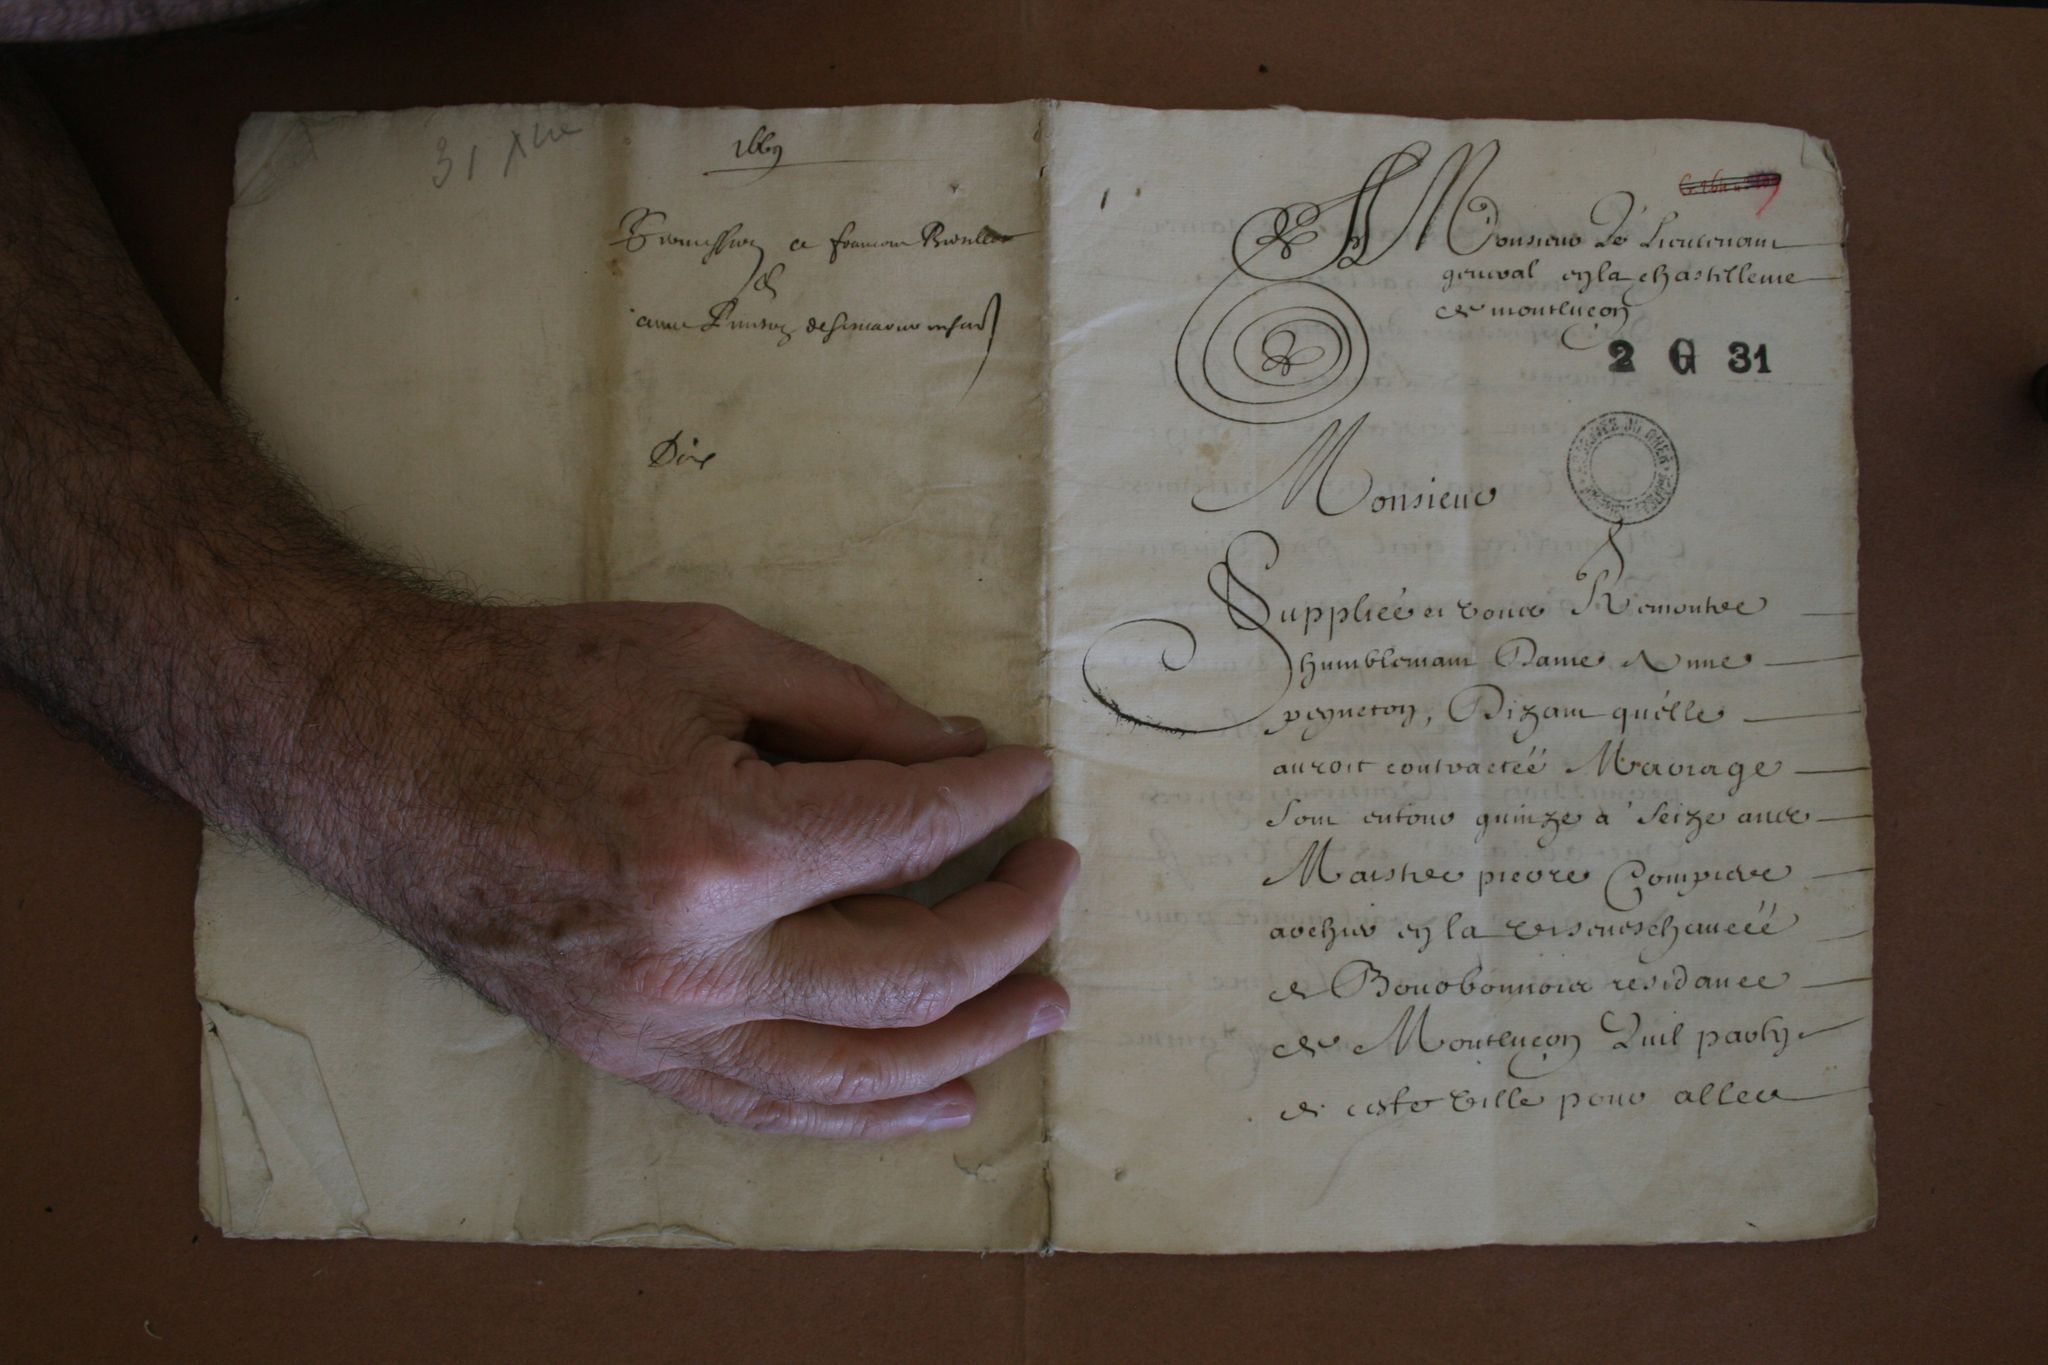 31 xbre
1669
Permission a francois
&
anne
Dixe
A Monsieur Le Lieutenant
general en la chastellenie
de montluçon
2 G 31
ARCHIVES DU CHER
Monsieur
Supplie et vous Remontre
humblemant Dame Anne
peyneton, Dizant quelle
auroit contractéé Mariage
sont entour quinze a seize ance
Maistre pierre Compiere
archer en la viseneschauceéé
de Bourbonnois residance
de Montluçon Quil party
de ceste ville pour aller